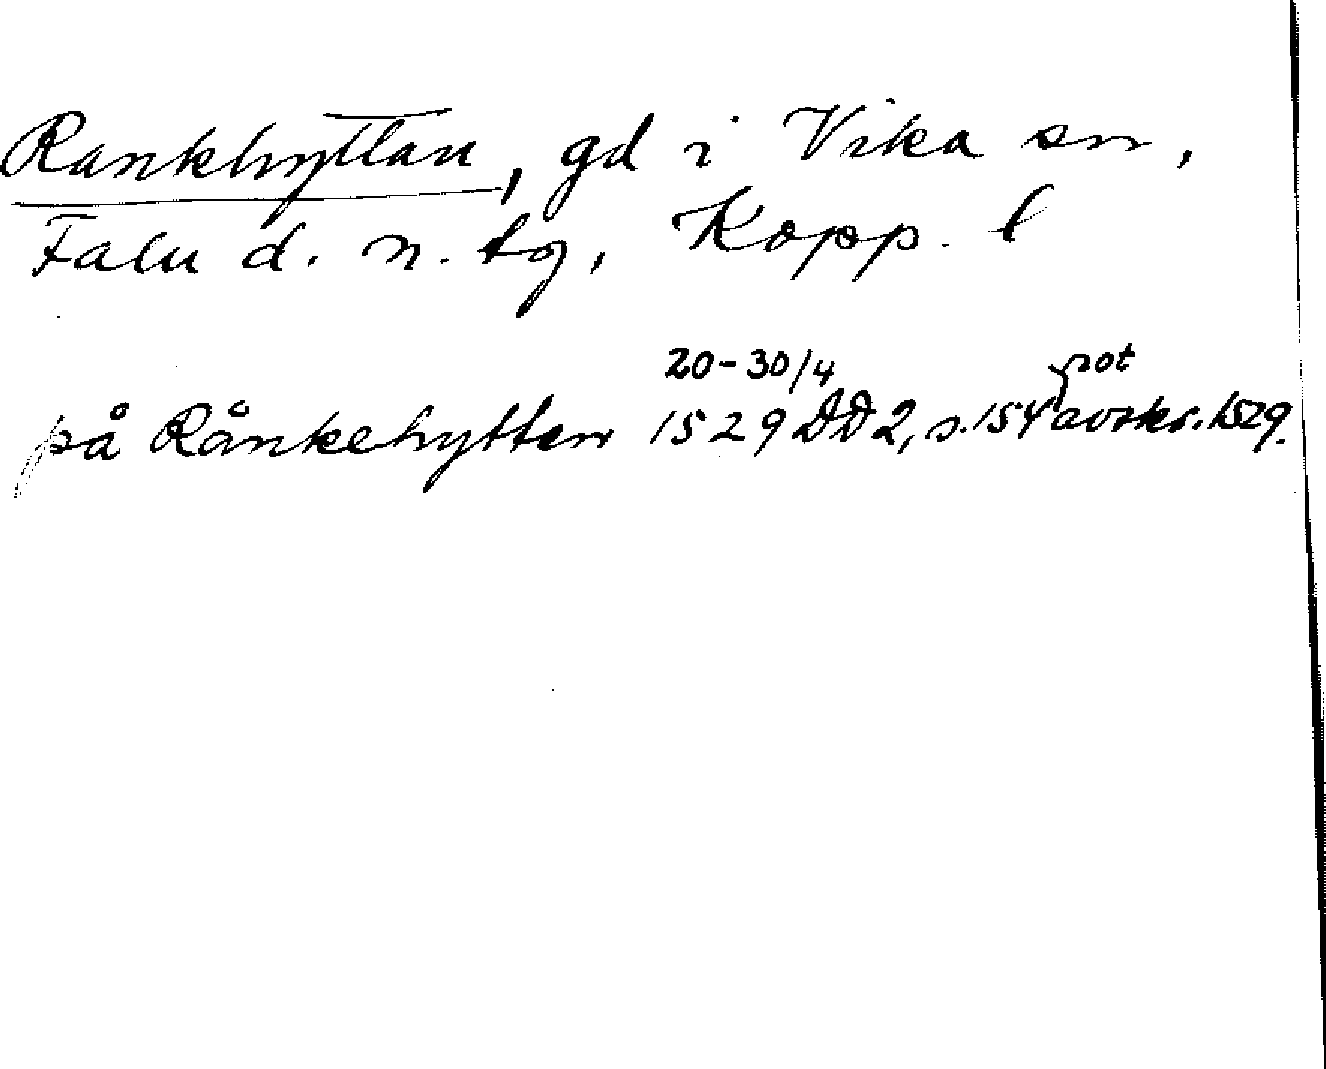 Rankhyttan, gd i Vika sn,
Falu d. n. tg, Kopp. l
20-30/4 not
på Rånkehytten 1529 DD2, s. 154 avskr. 1529.